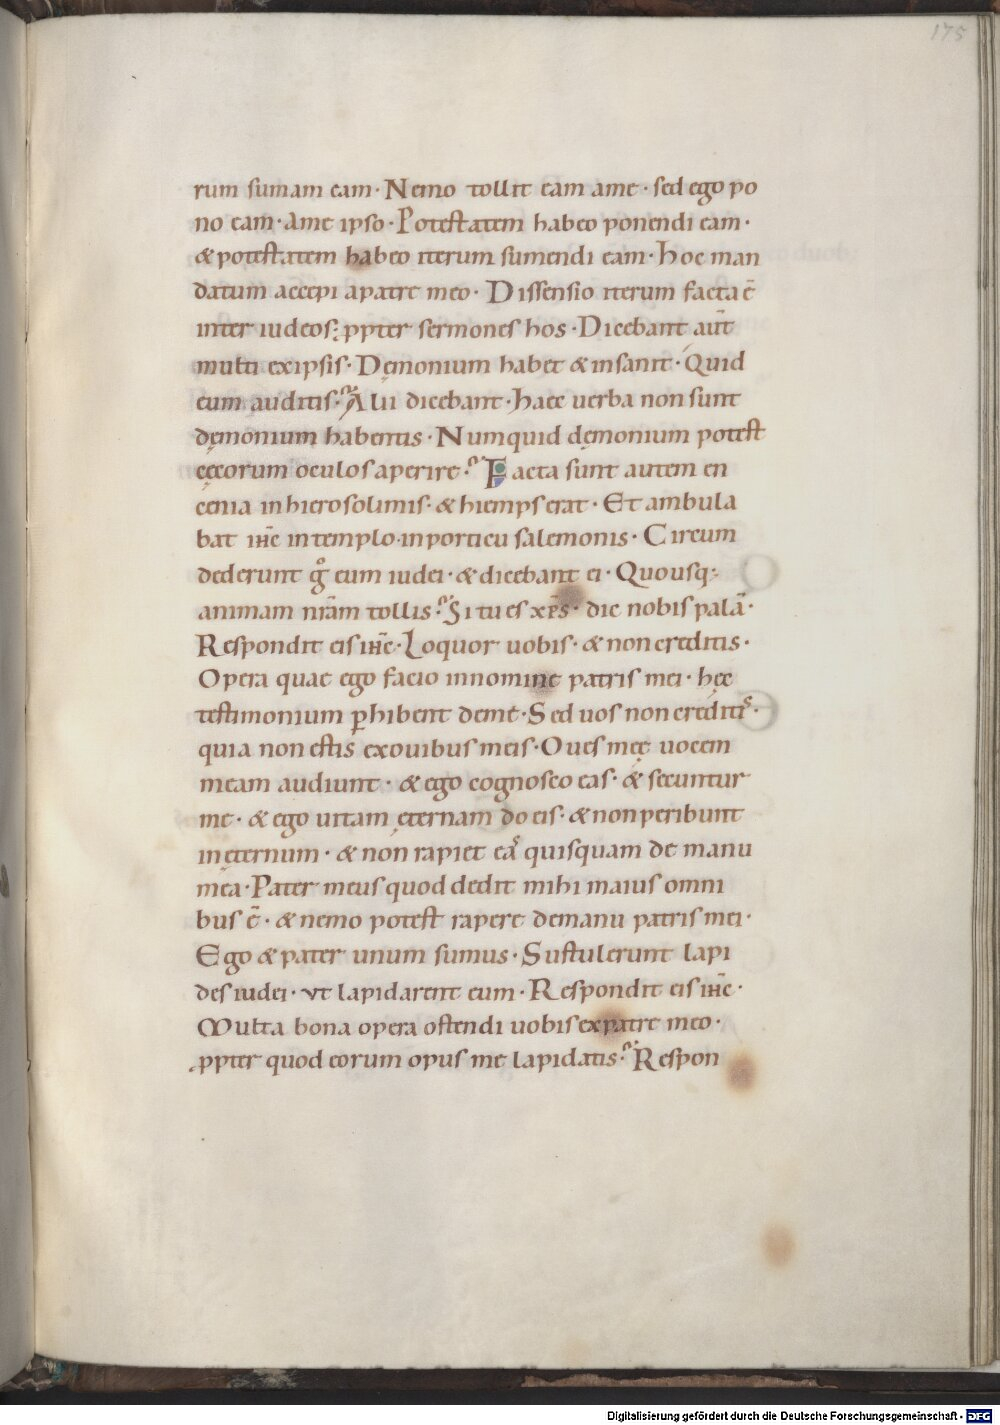 175
rum sumam eam · Nemo tollit eam ame · sed ego po
no eam · ame ipso · Potestatem habeo ponendi eam ·
& potestatem habeo iterum sumendi eam · Hoc man
datum accepi apatre meo · Dissensio iterum facta ē
inter iudeos; ꝓpter sermones hos · Dicebant aūt
multi exipsis · Dęmonium habet & insanit · Quid
eum auditis? Alii dicebant · Haec uerba non sunt
dęmonium habentis · Numquid dęmonium potest
cęcorum oculos aperire? Facta sunt autem en
cenia inhierosolimis · & hiemps erat · Et ambula
bat ihc̄ intemplo · inporticu salemonis · Circum
dederunt gͦ eum iudei · & dicebant ei · Quousq;
animam nr̄am tollis? Si tu es xp̄s · dic nobis palā ·
Respondit eis ihc̄ · Loquor uobis · & non creditis ·
Opera quae ego facio innomine patris mei · hęc
testimonium ꝑhibent deme · Sed uos non creditis ·
quia non estis exouibus meis · Oues męę uocem
meam audiunt · & ego cognosco eas · & secuntur
me · & ego uitam ęternam do eis · & non peribunt
inęternum · & non rapiet eas quisquam de manu
mea · Pater meus quod dedit mihi maius omni
bus ē · & nemo potest rapere demanu patris mei ·
Ego & pater unum sumus · Sustulerunt lapi
des iudei · vt lapidarent eum · Respondit eis ihc̄ ·
Multa bona opera ostendi uobis expatre meo ·
ꝓpter quod eorum opus me lapidatis? Respon
Digitalisierung gefördert durch die Deutsche Forschungsgemeinschaft - DFG